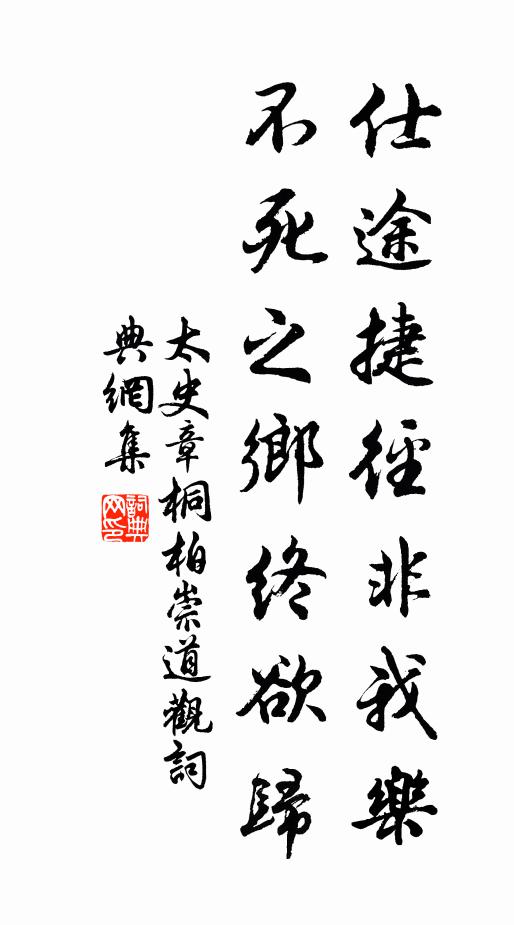 仕途捷徑非我樂
不死之鄉終欲歸
太史章桐柏崇道觀詞
典網集
詞典
网印